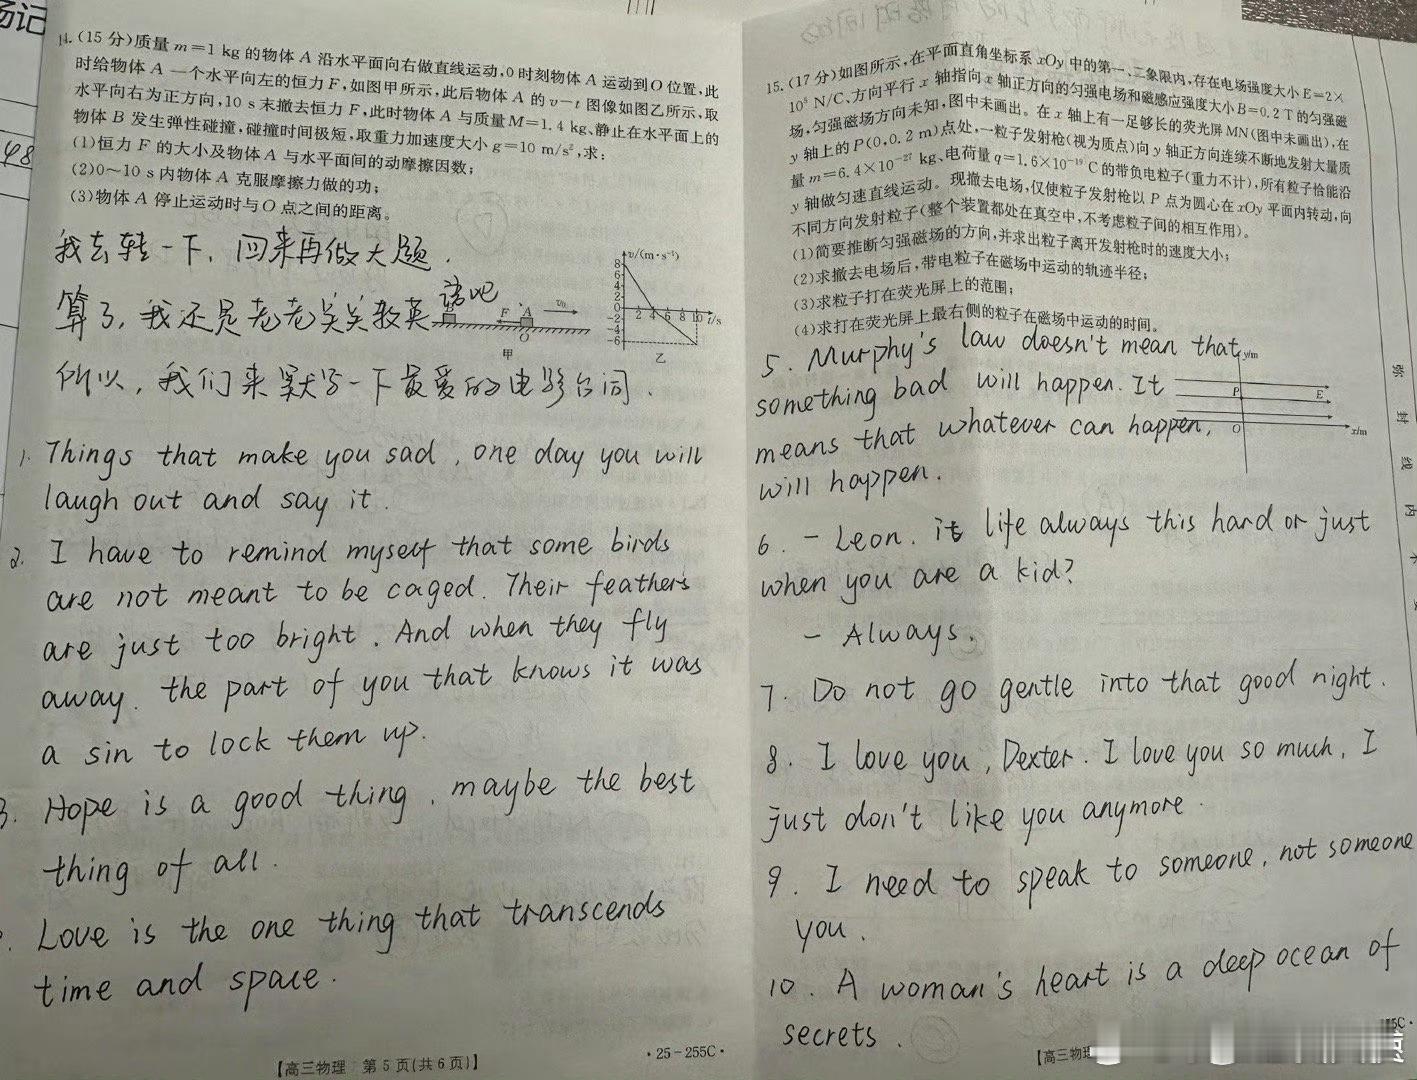 场记
48
14.(15分)质量m=1 kg的物体A沿水平面向右做直线运动,0时刻物体A运动到O位置,此
时给物体A一个水平向左的恒力F,如图甲所示,此后物体A的v-t图像如图乙所示,取
水平向右为正方向,10 s末撤去恒力F,此时物体A与质量M=1.4 kg、静止在水平面上的
物体B发生弹性碰撞,碰撞时间极短,取重力加速度大小g=10 m/s²,求:
(1)恒力F的大小及物体A与水平面间的动摩擦因数;
(2)0~10 s内物体A克服摩擦力做的功;
(3)物体A停止运动时与O点之间的距离。
我去转一下,回来再做大题.
算了,我还是老老实实教英语吧.
F A v₀
O
甲
v/(m·s⁻¹)
8
6
4
2
0 2 4 6 8 10 t/s
-2
-4
-6
乙
所以,我们来默写一下最爱的电影台词.
1. Things that make you sad, one day you will
laugh out and say it.
2. I have to remind myself that some birds
are not meant to be caged. Their feathers
are just too bright. And when they fly
away, the part of you that knows it was
a sin to lock them up.
3. Hope is a good thing, maybe the best
thing of all.
Love is the one thing that transcends
time and space.
·25-255C·
【高三物理 第5页(共6页)】
15.(17分)如图所示,在平面直角坐标系xOy中的第一、二象限内,存在电场强度大小E=2×
10⁵ N/C、方向平行x轴指向x轴正方向的匀强电场和磁感应强度大小B=0.2 T的匀强磁
场,匀强磁场方向未知,图中未画出。在x轴上有一足够长的荧光屏MN(图中未画出),在
y轴上的P(0,0.2 m)点处,一粒子发射枪(视为质点)向y轴正方向连续不断地发射大量质
量m=6.4×10⁻²⁷ kg、电荷量q=1.6×10⁻¹⁹ C的带负电粒子(重力不计),所有粒子恰能沿
y轴做匀速直线运动。现撤去电场,仅使粒子发射枪以P点为圆心在xOy平面内转动,向
不同方向发射粒子(整个装置都处在真空中,不考虑粒子间的相互作用)。
(1)简要推断匀强磁场的方向,并求出粒子离开发射枪时的速度大小;
(2)求撤去电场后,带电粒子在磁场中运动的轨迹半径;
(3)求粒子打在荧光屏上的范围;
(4)求打在荧光屏上最右侧的粒子在磁场中运动的时间。
5. Murphy's law doesn't mean that
something bad will happen. It
means that whatever can happen,
will happen.
y/m
P E
O x/m
6. - Leon. is life always this hard or just
when you are a kid?
- Always.
7. Do not go gentle into that good night.
8. I love you, Dexter. I love you so much, I
just don't like you anymore.
9. I need to speak to someone, not someone
you.
10. A woman's heart is a deep ocean of
secrets.
【高三物理
5C·
弥 封 线 内 不